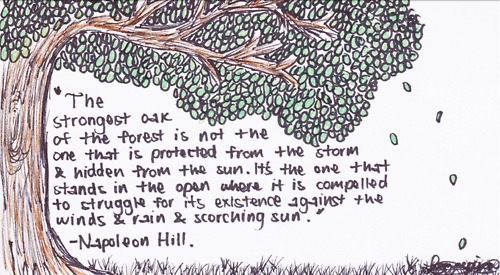 "The
strongest oak
of the forest is not the
one that is protected from the storm
& hidden from the sun. It's the one that
stands in the open where it is compelled
to struggle for its existence against the
winds & rain & scorching sun."
-Napoleon Hill.